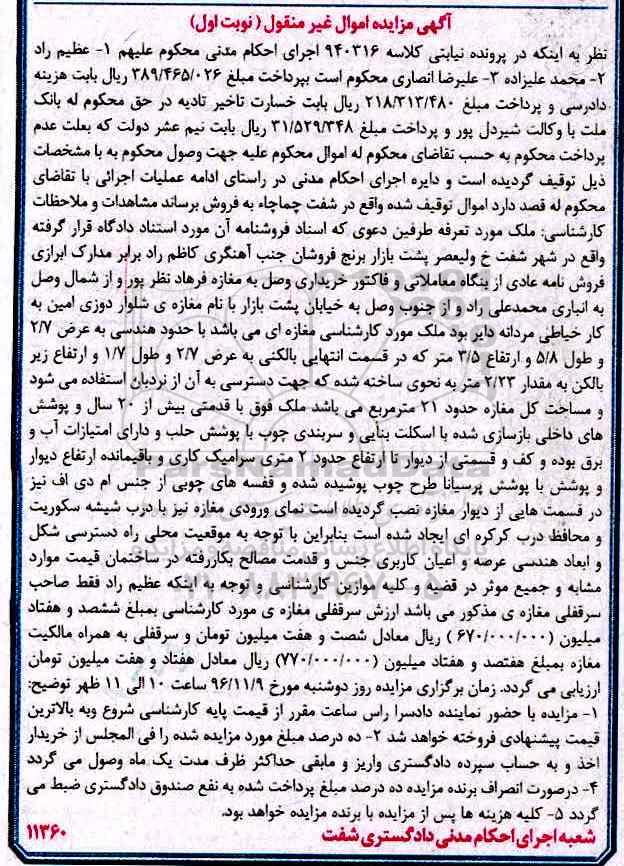 آگهی مزایده اموال غیر منقول ( نوبت اول)
نظر به اینکه در پرونده نیابتی کلاسه ۹۴۰۳۱۶ اجرای احکام مدنی محکوم علیهم ۱- عظیم راد
۲- محمد علیزاده ۳- علیرضا انصاری محکوم است بپرداخت مبلغ ۳۸۹/۴۶۵/۰۲۶ ریال بابت هزینه
دادرسی و پرداخت مبلغ ۲۱۸/۲۱۳/۴۸۰ ریال بابت خسارت تاخیر تادیه در حق محکوم له بانک
ملت با وکالت شیردل پور و پرداخت مبلغ ۳۱/۵۲۹/۳۴۸ ریال بابت نیم عشر دولت که بعلت عدم
پرداخت محکوم به حسب تقاضای محکوم له اموال محکوم علیه جهت وصول محکوم به با مشخصات
ذیل توقیف گردیده است و دایره اجرای احکام مدنی در راستای ادامه عملیات اجرائی با تقاضای
محکوم له قصد دارد اموال توقیف شده واقع در شفت چماچاه به فروش برساند مشاهدات و ملاحظات
کارشناسی: ملک مورد تعرفه طرفین دعوی که اسناد فروشنامه آن مورد استناد دادگاه قرار گرفته
واقع در شهر شفت خ ولیعصر پشت بازار برنج فروشان جنب آهنگری کاظم راد برابر مدارک ابرازی
فروش نامه عادی از بنگاه معاملاتی و فاکتور خریداری وصل به مغازه فرهاد نظر پور و از شمال وصل
به انباری محمدعلی راد و از جنوب وصل به خیابان پشت بازار با نام مغازه ی شلوار دوزی امین به
کار خیاطی مردانه دایر بود ملک مورد کارشناسی مغازه ای می باشد با حدود هندسی به عرض ۲/۷
و طول ۵/۸ و ارتفاع ۳/۵ متر که در قسمت انتهایی بالکنی به عرض ۲/۷ و طول ۱/۷ و ارتفاع زیر
بالکن به مقدار ۲/۲۳ متر به نحوی ساخته شده که جهت دسترسی به آن از نردبان استفاده می شود
و مساحت کل مغازه حدود ۲۱ مترمربع می باشد ملک فوق با قدمتی بیش از ۲۰ سال و پوشش
های داخلی بازسازی شده با اسکلت بنایی و سربندی چوب با پوشش حلب و دارای امتیازات آب و
برق بوده و کف و قسمتی از دیوار تا ارتفاع حدود ۲ متری سرامیک کاری و باقیمانده ارتفاع دیوار
و پوشش با پوشش پرسیانا طرح چوب پوشیده شده و قفسه های چوبی از جنس ام دی اف نیز
در قسمت هایی از دیوار مغازه نصب گردیده است نمای ورودی مغازه نیز با درب شیشه سکوریت
و محافظ درب کرکره ای ایجاد شده است بنابراین با توجه به موقعیت محلی راه دسترسی شکل
و ابعاد هندسی عرصه و اعیان کاربری جنس و قدمت مصالح بکاررفته در ساختمان قیمت موارد
مشابه و جمیع موثر در قضیه و کلیه موازین کارشناسی و توجه به اینکه عظیم راد فقط صاحب
سرقفلی مغازه ی مذکور می باشد ارزش سرقفلی مغازه ی مورد کارشناسی بمبلغ ششصد و هفتاد
میلیون (۶۷۰/۰۰۰/۰۰۰ ) ریال معادل شصت و هفت میلیون تومان و سرقفلی به همراه مالکیت
مغازه بمبلغ هفتصد و هفتاد میلیون (۷۷۰/۰۰۰/۰۰۰) ریال معادل هفتاد و هفت میلیون تومان
ارزیابی می گردد. زمان برگزاری مزایده روز دوشنبه مورخ ۹۶/۱۱/۹ ساعت ۱۰ الی ۱۱ ظهر توضیح:
۱- مزایده با حضور نماینده دادسرا راس ساعت مقرر از قیمت پایه کارشناسی شروع وبه بالاترین
قیمت پیشنهادی فروخته خواهد شد ۲- ده درصد مبلغ مورد مزایده شده را فی المجلس از خریدار
اخذ و به حساب سپرده دادگستری واریز و مابقی حداکثر ظرف مدت یک ماه وصول می گردد
۴- درصورت انصراف برنده مزایده ده درصد مبلغ پرداخت شده به نفع صندوق دادگستری ضبط می
گردد ۵- کلیه هزینه ها پس از مزایده با برنده مزایده خواهد بود.
شعبه اجرای احکام مدنی دادگستری شفت
۱۱۳۶۰